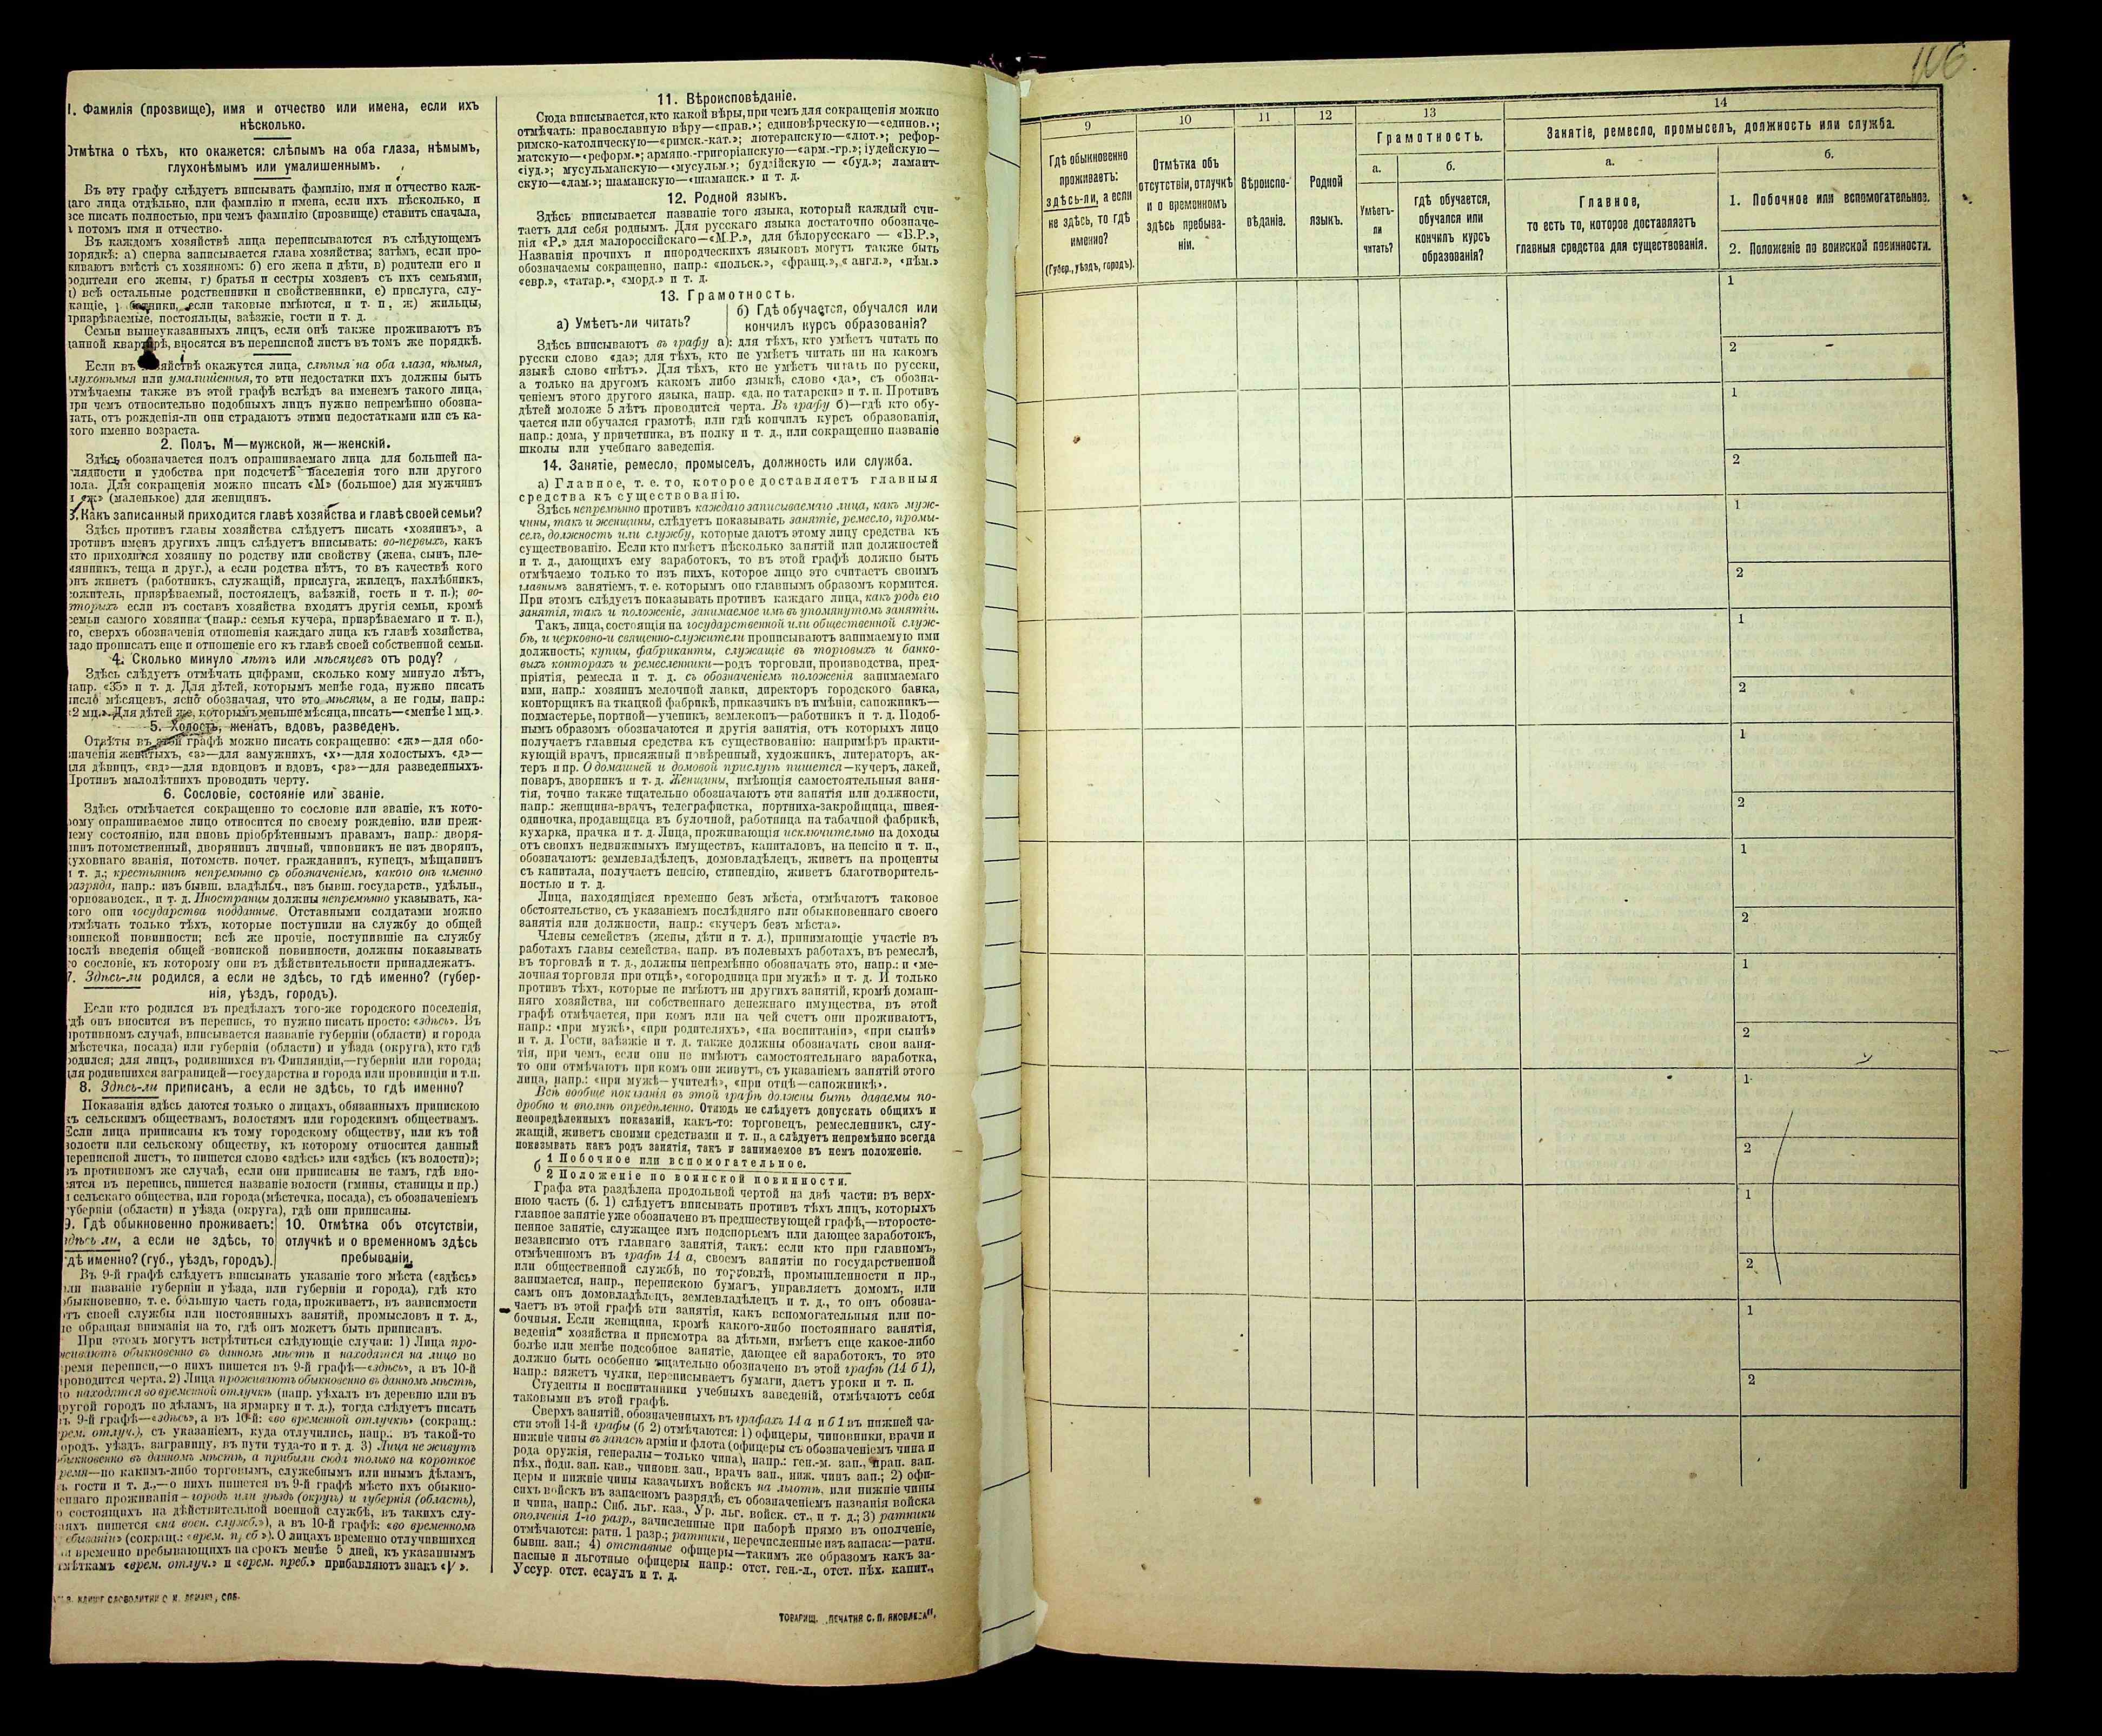 1. Фамилія (прозвище), имя и отчество или имена, если ихъ
нѣсколько.
Отмѣтка о тѣхъ, кто окажется: слѣпымъ на оба глаза, нѣмымъ,
глухонѣмымъ или умалишеннымъ.
Въ эту графу слѣдуетъ вписывать фамилію, имя и отчество каж-
даго лица отдѣльно, или фамилію и имена, если ихъ нѣсколько, и
все писать полностью, при чемъ фамилію (прозвище) ставить сначала,
а потомъ имя и отчество.
Въ каждомъ хозяйствѣ лица переписываются въ слѣдующемъ
порядкѣ: а) сперва записывается глава хозяйства; затѣмъ, если про-
живаютъ вмѣстѣ съ хозяиномъ: б) его жена и дѣти, в) родители его и
родители его жены, г) братья и сестры хозяевъ съ ихъ семьями,
д) всѣ остальные родственники и свойственники, е) прислуга, слу-
жащіе, если таковые имѣются, и т. п, ж) жильцы,
призрѣваемые, постояльцы, заѣзжіе, гости и т. д.
Семьи вышеуказанныхъ лицъ, если онѣ также проживаютъ въ
данной квартирѣ, вносятся въ переписной листъ въ томъ же порядкѣ.
Если въ хозяйствѣ окажутся лица, слѣпыя на оба глаза, нѣмыя,
глухонѣмыя или умалишенныя, то эти недостатки ихъ должны быть
отмѣчаемы также въ этой графѣ вслѣдъ за именемъ такого лица,
при чемъ относительно подобныхъ лицъ нужно непремѣнно обозна-
чать, отъ рожденія-ли они страдаютъ этими недостатками или съ ка-
кого именно возраста.
2. Полъ, М—мужской, ж—женскій.
Здѣсь обозначается полъ опрашиваемаго лица для большей на-
глядности и удобства при подсчетѣ населенія того или другого
пола. Для сокращенія можно писать «М» (большое) для мужчинъ
и «ж» (маленькое) для женщинъ.
3. Какъ записанный приходится главѣ хозяйства и главѣ своей семьи?
Здѣсь противъ главы хозяйства слѣдуетъ писать «хозяинъ», а
противъ именъ другихъ лицъ слѣдуетъ вписывать: во-первыхъ, какъ
кто приходится хозяину по родству или свойству (жена, сынъ, пле-
мянникъ, теща и друг.), а если родства нѣтъ, то въ качествѣ кого
онъ живетъ (работникъ, служащій, прислуга, жилецъ, нахлѣбникъ,
сожитель, призрѣваемый, постоялецъ, заѣзжій, гость и т. п.); во-
вторыхъ если въ составъ хозяйства входятъ другія семьи, кромѣ
семьи самого хозяина (напр.: семья кучера, призрѣваемаго и т. п.),
то, сверхъ обозначенія отношенія каждаго лица къ главѣ хозяйства,
надо прописать еще и отношеніе его къ главѣ своей собственной семьи.
4. Сколько минуло лѣтъ или мѣсяцевъ отъ роду?
Здѣсь слѣдуетъ отмѣчать цифрами, сколько кому минуло лѣтъ,
напр. «35» и т. д. Для дѣтей, которымъ менѣе года, нужно писать
число мѣсяцевъ, ясно обозначая, что это мѣсяцы, а не годы, напр.:
«2 мц.». Для дѣтей же, которымъ меньше мѣсяца, писать—«менѣе 1 мц.».
5. Холостъ, женатъ, вдовъ, разведенъ.
Отвѣты въ этой графѣ можно писать сокращенно: «ж»—для обо-
значенія женатыхъ, «з»—для замужнихъ, «х»—для холостыхъ, «д»—
для дѣвицъ, «вд»—для вдовцовъ и вдовъ, «рз»—для разведенныхъ.
Противъ малолѣтнихъ проводить черту.
6. Сословіе, состояніе или званіе.
Здѣсь отмѣчается сокращенно то сословіе или званіе, къ кото-
рому опрашиваемое лицо относится по своему рожденію, или преж-
нему состоянію, или вновь пріобрѣтеннымъ правамъ, напр.: дворя-
нинъ потомственный, дворянинъ личный, чиновникъ не изъ дворянъ,
духовнаго званія, потомств. почет. гражданинъ, купецъ, мѣщанинъ
и т. д.; крестьянинъ непремѣнно съ обозначеніемъ, какого онъ именно
разряда, напр.: изъ бывш. владѣльч., изъ бывш. государств., удѣльн.,
горнозаводск., и т. д. Иностранцы должны непремѣнно указывать, ка-
кого они государства подданные. Отставными солдатами можно
отмѣчать только тѣхъ, которые поступили на службу до общей
воинской повинности; всѣ же прочіе, поступившіе на службу
послѣ введенія общей воинской повинности, должны показывать
то сословіе, къ которому они въ дѣйствительности принадлежатъ.
7. Здѣсь-ли родился, а если не здѣсь, то гдѣ именно? (губер-
нія, уѣздъ, городъ).
Если кто родился въ предѣлахъ того-же городского поселенія,
гдѣ онъ вносится въ перепись, то нужно писать просто: «здѣсь». Въ
противномъ случаѣ, вписывается названіе губерніи (области) и города
(мѣстечка, посада) или губерніи (области) и уѣзда (округа), кто гдѣ
родился; для лицъ, родившихся въ Финляндіи,—губерніи или города;
для родившихся заграницей—государства и города или провинціи и т.п.
8. Здѣсь-ли приписанъ, а если не здѣсь, то гдѣ именно?
Показанія здѣсь даются только о лицахъ, обязанныхъ припискою
къ сельскимъ обществамъ, волостямъ или городскимъ обществамъ.
Если лица приписаны къ тому городскому обществу, или къ той
волости или сельскому обществу, къ которому относится данный
переписной листъ, то пишется слово «здѣсь» или «здѣсь (къ волости)»;
въ противномъ же случаѣ, если они приписаны не тамъ, гдѣ вно-
сятся въ перепись, пишется названіе волости (гмины, станицы и пр.)
и сельскаго общества, или города (мѣстечка, посада), съ обозначеніемъ
губерніи (области) и уѣзда (округа), гдѣ они приписаны.
9. Гдѣ обыкновенно проживаетъ:
здѣсь-ли, а если не здѣсь, то
гдѣ именно? (губ., уѣздъ, городъ).
10. Отмѣтка объ отсутствіи,
отлучкѣ и о временномъ здѣсь
пребываніи.
Въ 9-й графѣ слѣдуетъ вписывать указаніе того мѣста («здѣсь»
или названіе губерніи и уѣзда, или губерніи и города), гдѣ кто
обыкновенно, т. е. бо́льшую часть года, проживаетъ, въ зависимости
отъ своей службы или постоянныхъ занятій, промысловъ и т. д.,
не обращая вниманія на то, гдѣ онъ можетъ быть приписанъ.
При этомъ могутъ встрѣтиться слѣдующіе случаи: 1) Лица про-
живаютъ обыкновенно въ данномъ мѣстѣ и находятся на лицо во
время переписи,—о нихъ пишется въ 9-й графѣ—«здѣсь», а въ 10-й
проводится черта. 2) Лица проживаютъ обыкновенно въ данномъ мѣстѣ,
но находятся во временной отлучкѣ (напр. уѣхалъ въ деревню или въ
другой городъ по дѣламъ, на ярмарку и т. д.), тогда слѣдуетъ писать
въ 9-й графѣ—«здѣсь», а въ 10-й: «во временной отлучкѣ» (сокращ.:
врем. отлуч.), съ указаніемъ, куда отлучились, напр.: въ такой-то
городъ, уѣздъ, заграницу, въ пути туда-то и т. д. 3) Лица не живутъ
обыкновенно въ данномъ мѣстѣ, а прибыли сюда только на короткое
время—по какимъ-либо торговымъ, служебнымъ или инымъ дѣламъ,
въ гости и т. д.,—о нихъ пишется въ 9-й графѣ мѣсто ихъ обыкно-
веннаго проживанія—городъ или уѣздъ (округъ) и губернія (область),
о состоящихъ на дѣйствительной военной службѣ, въ такихъ слу-
чаяхъ пишется «на воен. служб.»), а въ 10-й графѣ: «во временномъ
пребываніи» (сокращ.: «врем. преб.»). О лицахъ временно отлучившихся
или временно пребывающихъ на срокъ менѣе 5 дней, къ указаннымъ
отмѣткамъ «врем. отлуч.» и «врем. преб.» прибавляютъ знакъ «V».
11. Вѣроисповѣданіе.
Сюда вписывается, кто какой вѣры, при чемъ для сокращенія можно
отмѣчать: православную вѣру—«прав.»; единовѣрческую—«единов.»;
римско-католическую—«римск.-кат.»; лютеранскую—«лют.»; рефор-
матскую—«реформ.»; армяно.-григоріанскую—«арм.-гр.»; іудейскую—
«іуд.»; мусульманскую—«мусульм.»; буддійскую — «буд.»; ламаит-
скую—«лам.»; шаманскую—«шаманск.» и т. д.
12. Родной языкъ.
Здѣсь вписывается названіе того языка, который каждый счи-
таетъ для себя роднымъ. Для русскаго языка достаточно обозначе-
нія «Р.» для малороссійскаго—«М.Р.», для бѣлорусскаго — «Б.Р.»,
Названія прочихъ и инородческихъ языковъ могутъ также быть
обозначаемы сокращенно, напр.: «польск.», «франц.», «англ.», «нѣм.»
«евр.», «татар.», «морд.» и т. д.
13. Грамотность.
а) Умѣетъ-ли читать?
б) Гдѣ обучается, обучался или
кончилъ курсъ образованія?
Здѣсь вписываютъ въ графу а): для тѣхъ, кто умѣетъ читать по
русски слово «да»; для тѣхъ, кто не умѣетъ читать ни на какомъ
языкѣ слово «нѣтъ». Для тѣхъ, кто не умѣетъ читать по русски,
а только на другомъ какомъ либо языкѣ, слово «да», съ обозна-
ченіемъ этого другого языка, напр. «да, по татарски» и т. п. Противъ
дѣтей моложе 5 лѣтъ проводится черта. Въ графу б)—гдѣ кто обу-
чается или обучался грамотѣ, или гдѣ кончилъ курсъ образованія,
напр.: дома, у причетника, въ полку и т. д., или сокращенно названіе
школы или учебнаго заведенія.
14. Занятіе, ремесло, промыселъ, должность или служба.
а) Главное, т. е. то, которое доставляетъ главныя
средства къ существованію.
Здѣсь непремѣнно противъ каждаго записываемаго лица, какъ муж-
чины, такъ и женщины, слѣдуетъ показывать занятіе, ремесло, промы-
селъ, должность или службу, которые даютъ этому лицу средства къ
существованію. Если кто имѣетъ нѣсколько занятій или должностей
и т. д., дающихъ ему заработокъ, то въ этой графѣ должно быть
отмѣчаемо только то изъ нихъ, которое лицо это считаетъ своимъ
главнымъ занятіемъ, т. е. которымъ оно главнымъ образомъ кормится.
При этомъ слѣдуетъ показывать противъ каждаго лица, какъ родъ его
занятія, такъ и положеніе, занимаемое имъ въ упомянутомъ занятіи.
Такъ, лица, состоящія на государственной или общественной служ-
бѣ, и церковно-и священно-служители прописываютъ занимаемую ими
должность; купцы, фабриканты, служащіе въ торговыхъ и банко-
выхъ конторахъ и ремесленники—родъ торговли, производства, пред-
пріятія, ремесла и т. д. съ обозначеніемъ положенія занимаемаго
ими, напр.: хозяинъ мелочной лавки, директоръ городского банка,
конторщикъ на ткацкой фабрикѣ, приказчикъ въ имѣніи, сапожникъ—
подмастерье, портной—ученикъ, землекопъ—работникъ и т. д. Подоб-
нымъ образомъ обозначаются и другія занятія, отъ которыхъ лицо
получаетъ главныя средства къ существованію: напримѣръ практи-
кующій врачъ, присяжный повѣренный, художникъ, литераторъ, ак-
теръ и пр. О домашней и домовой прислугѣ пишется—кучеръ, лакей,
поваръ, дворникъ и т. д. Женщины, имѣющія самостоятельныя заня-
тія, точно также тщательно обозначаютъ эти занятія или должности,
напр.: женщина-врачъ, телеграфистка, портниха-закройщица, швея-
одиночка, продавщица въ булочной, работница на табачной фабрикѣ,
кухарка, прачка и т. д. Лица, проживающія исключительно на доходы
отъ своихъ недвижимыхъ имуществъ, капиталовъ, на пенсію и т. п.,
обозначаютъ: землевладѣлецъ, домовладѣлецъ, живетъ на проценты
съ капитала, получаетъ пенсію, стипендію, живетъ благотворитель-
ностью и т. д.
Лица, находящіяся временно безъ мѣста, отмѣчаютъ таковое
обстоятельство, съ указаніемъ послѣдняго или обыкновеннаго своего
занятія или должности, напр.: «кучеръ безъ мѣста».
Члены семействъ (жены, дѣти и т. д.), принимающіе участіе въ
работахъ главы семейства, напр. въ полевыхъ работахъ, въ ремеслѣ,
въ торговлѣ и т. д., должны непремѣнно обозначать это, напр.: и «ме-
лочная торговля при отцѣ», «огородница при мужѣ» и т. д. И только
противъ тѣхъ, которые не имѣютъ ни другихъ занятій, кромѣ домаш-
няго хозяйства, ни собственнаго денежнаго имущества, въ этой
графѣ отмѣчается, при комъ или на чей счетъ они проживаютъ,
напр.: «при мужѣ», «при родителяхъ», «на воспитаніи», «при сынѣ»
и т. д. Гости, заѣзжіе и т. д. также должны обозначать свои заня-
тія, при чемъ, если они не имѣютъ самостоятельнаго заработка,
то они отмѣчаютъ при комъ они живутъ, съ указаніемъ занятій этого
лица, напр.: «при мужѣ—учителѣ», «при отцѣ—сапожникѣ».
Всѣ вообще показанія въ этой графѣ должны быть даваемы по-
дробно и вполнѣ опредѣленно. Отнюдь не слѣдуетъ допускать общихъ и
неопредѣленныхъ показаній, какъ-то: торговецъ, ремесленникъ, слу-
жащій, живетъ своими средствами и т. п., а слѣдуетъ непремѣнно всегда
показывать какъ родъ занятія, такъ и занимаемое въ немъ положеніе.
б 1 Побочное или вспомогательное.
2 Положеніе по воинской повинности.
Графа эта раздѣлена продольной чертой на двѣ части: въ верх-
нюю часть (б. 1) слѣдуетъ вписывать противъ тѣхъ лицъ, которыхъ
главное занятіе уже обозначено въ предшествующей графѣ,—второсте-
пенное занятіе, служащее имъ подспорьемъ или дающее заработокъ,
независимо отъ главнаго занятія, такъ: если кто при главномъ,
отмѣченномъ въ графѣ 14 а, своемъ занятіи по государственной
или общественной службѣ, по торговлѣ, промышленности и пр.,
занимается, напр., перепискою бумагъ, управляетъ домомъ, или
самъ онъ домовладѣлецъ, землевладѣлецъ и т. д., то онъ обозна-
чаетъ въ этой графѣ эти занятія, какъ вспомогательныя или по-
бочныя. Если женщина, кромѣ какого-либо постояннаго занятія,
веденія хозяйства и присмотра за дѣтьми, имѣетъ еще какое-либо
болѣе или менѣе подсобное занятіе, дающее ей заработокъ, то это
должно быть особенно тщательно обозначено въ этой графѣ (14 б 1),
напр.: вяжетъ чулки, переписываетъ бумаги, даетъ уроки и т. п.
Студенты и воспитанники учебныхъ заведеній, отмѣчаютъ себя
таковыми въ этой графѣ.
Сверхъ занятій, обозначенныхъ въ графахъ 14 а и б 1 въ нижней ча-
сти этой 14-й графы (б 2) отмѣчаются: 1) офицеры, чиновники, врачи и
нижніе чины въ запасѣ арміи и флота (офицеры съ обозначеніемъ чина и
рода оружія, генералы—только чина), напр.: ген.-м. зап., прап. зап.
пѣх., подп. зап. кав., чиновн. зап., врачъ зап., ниж. чинъ зап.; 2) офи-
церы и нижніе чины казачьихъ войскъ на льготѣ, или нижніе чины
сихъ войскъ въ запасномъ разрядѣ, съ обозначеніемъ названія войска
и чина, напр.: Сиб. льг. каз., Ур. льг. войск. ст., и т. д.; 3) ратники
ополченія 1-го разр., зачисленные при наборѣ прямо въ ополченіе,
отмѣчаются: ратн. 1 разр.; ратники, перечисленные изъ запаса:—ратн.
бывш. зап.; 4) отставные офицеры—такимъ же образомъ какъ за-
пасные и льготные офицеры напр.: отст. ген.-л., отст. пѣх. капит.,
Уссур. отст. есаулъ и т. д.
ТОВАРИЩ. „ПЕЧАТНЯ С. П. ЯКОВЛЕВА".
106.
9
10
11
12
13
14
Грамотность.
Занятіе, ремесло, промыселъ, должность или служба.
Гдѣ обыкновенно
проживаетъ:
здѣсь-ли, а если
не здѣсь, то гдѣ
именно?
(Губер., уѣздъ, городъ).
Отмѣтка объ
отсутствіи, отлучкѣ
и о временномъ
здѣсь пребыва-
ніи.
Вѣроиспо-
вѣданіе.
Родной
языкъ.
а.
Умѣетъ-
ли
читать?
б.
гдѣ обучается,
обучался или
кончилъ курсъ
образованія?
а.
Главное,
то есть то, которое доставляетъ
главныя средства для существованія.
б.
1. Побочное или вспомогательное.
2. Положеніе по воинской повинности.
1
2
1
2
1
2
1
2
1
2
1
2
1
2
1
2
1
2
1
2